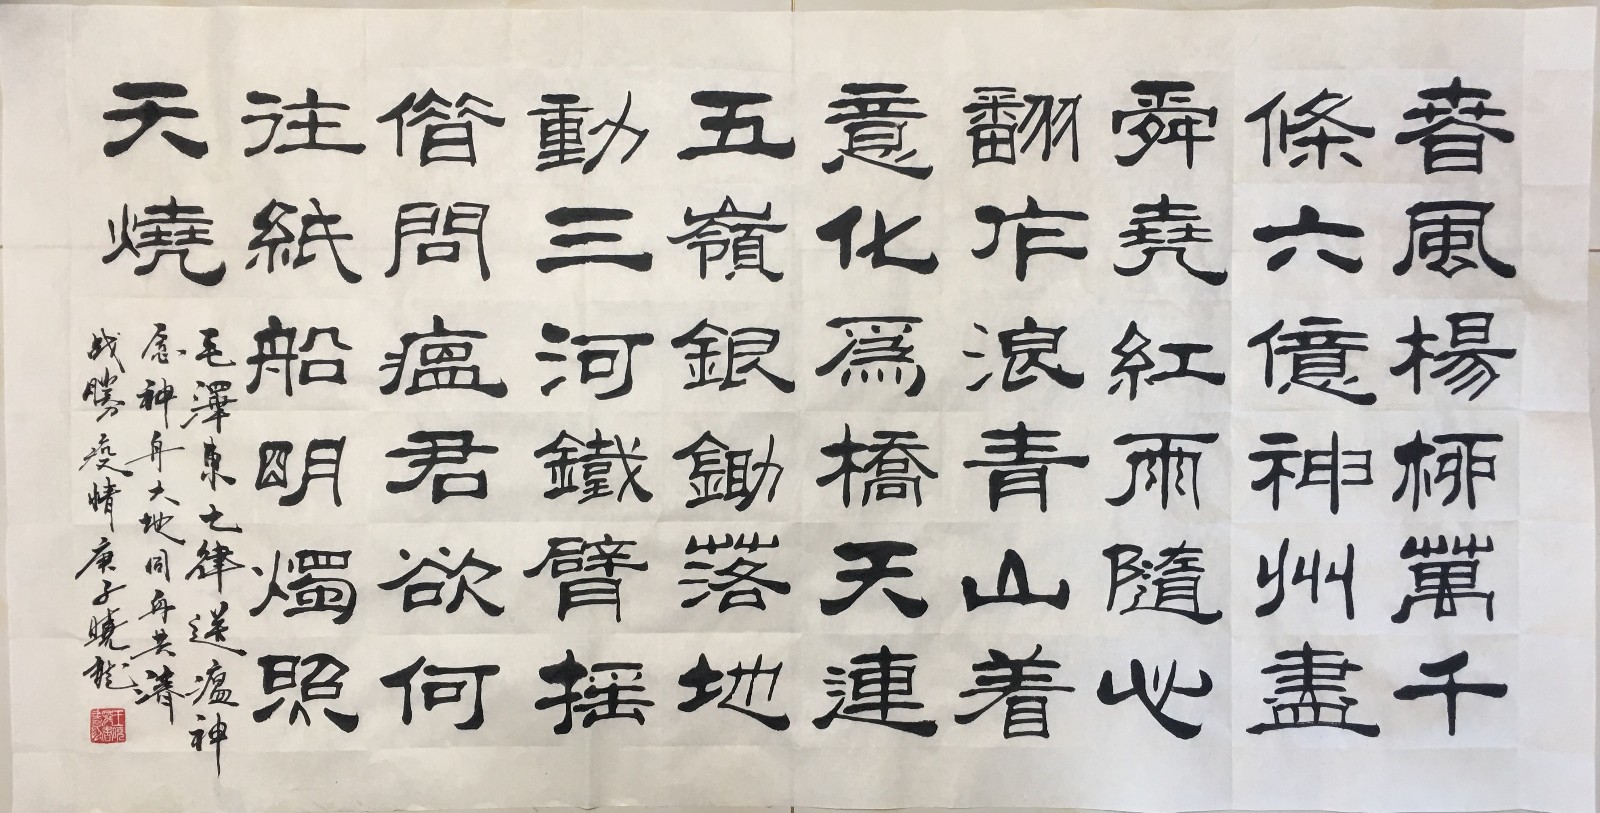 春風楊柳萬千
條六億神州盡
舜堯紅雨隨心
翻作浪青山着
意化為橋天連
五嶺銀鋤落地
動三河鐵臂摇
借問瘟君欲何
往紙船明燭照
天燒
毛澤東七律送瘟神
神舟大地同舟共濟
战勝疫情庚子曉龍